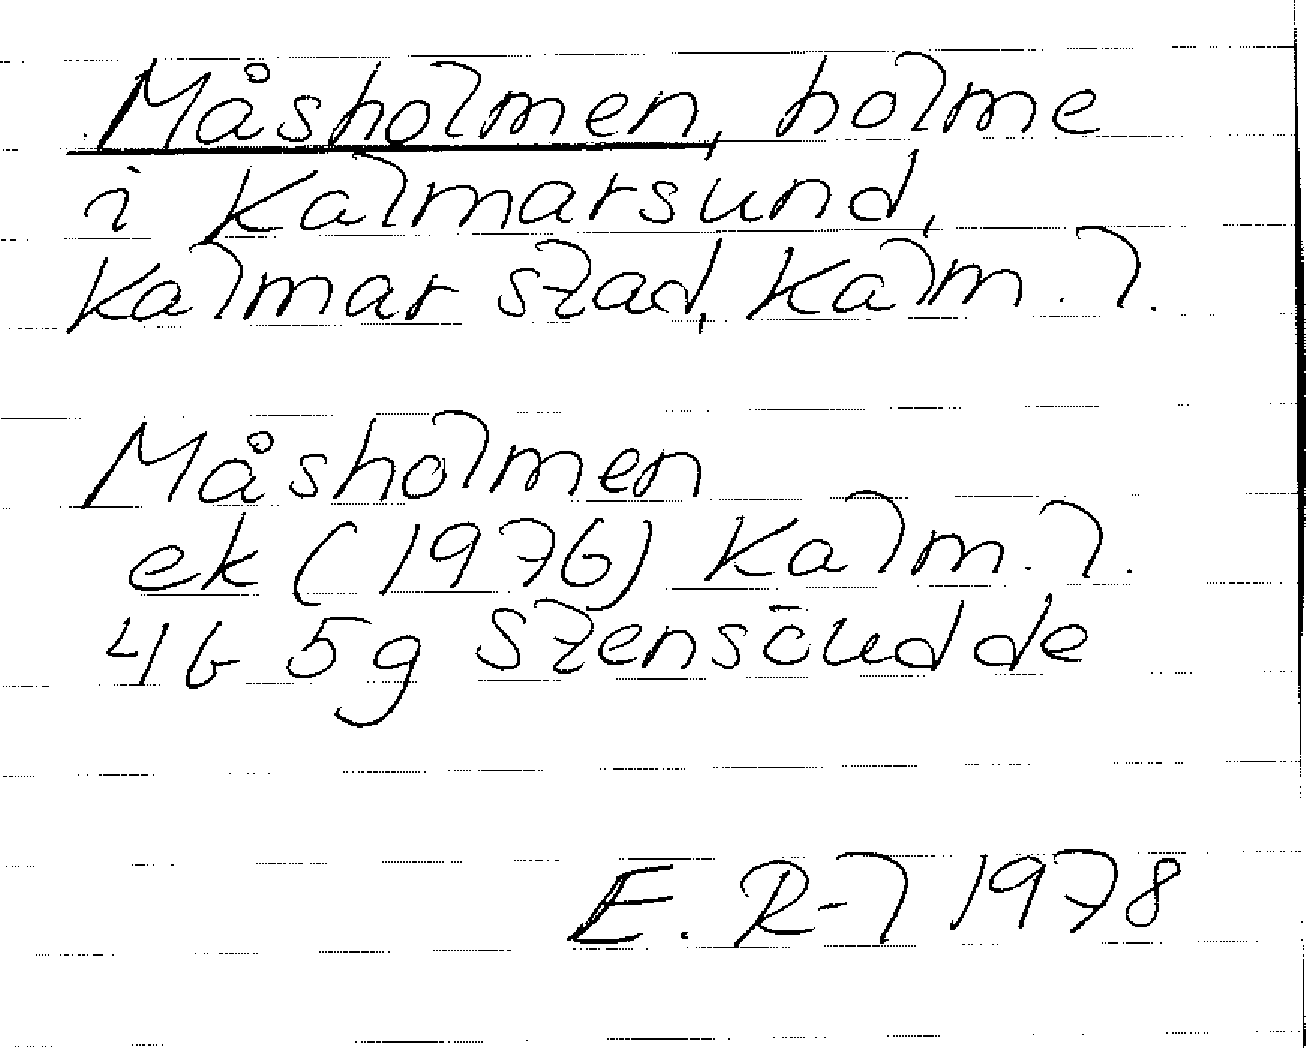 Måsholmen, holme
i Kalmarsund,
Kalmar stad, Kalm. l.
Måsholmen
ek (1976) Kalm. l.
4G 5g Stensöudde
E. R-l 1978